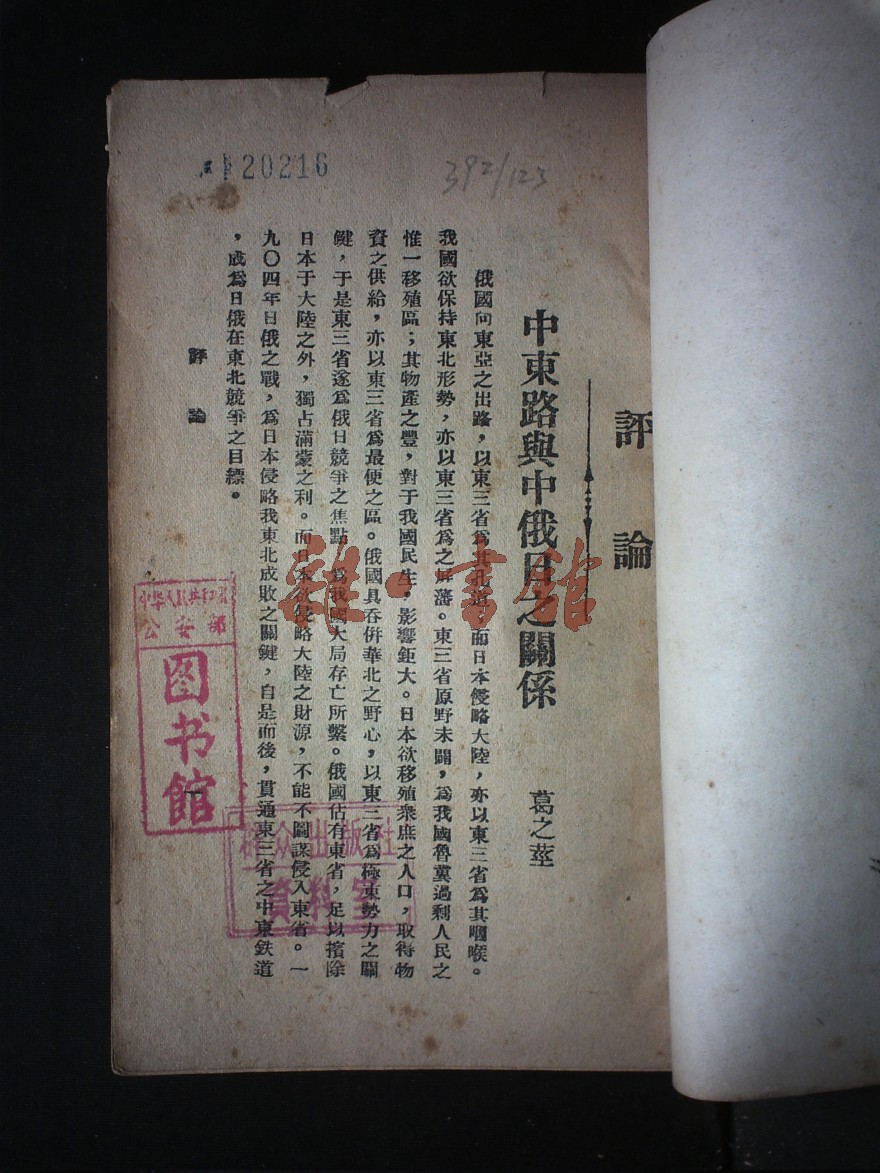 評論
中東路與中俄日之關係
葛之莖
俄國向東亞之出路，以東三省爲其孔道；而日本侵略大陸，亦以東三省爲其咽喉。
我國欲保持東北形勢，亦以東三省爲之屏藩。東三省原野未闢，爲我國魯冀過剩人民之
惟一移殖區；其物產之豐，對于我國民生，影響鉅大。日本欲移殖衆庶之人口，取得物
資之供給，亦以東三省爲最便之區。俄國具吞併華北之野心，以東三省爲極東勢力之關
鍵，于是東三省遂爲俄日競爭之焦點，爲我國大局存亡所繫。俄國佔有東省，足以擯除
日本于大陸之外，獨占滿蒙之利。而日本欲侵略大陸之財源，不能不圖謀侵入東省。一
九〇四年日俄之戰，爲日本侵略我東北成敗之關鍵，自是而後，貫通東三省之中東鉄道
，成爲日俄在東北競爭之目縹。
評論
一
20216
392/123
中华人民共和国
公安部
图书馆
群众出版社
資料室
雜·書館